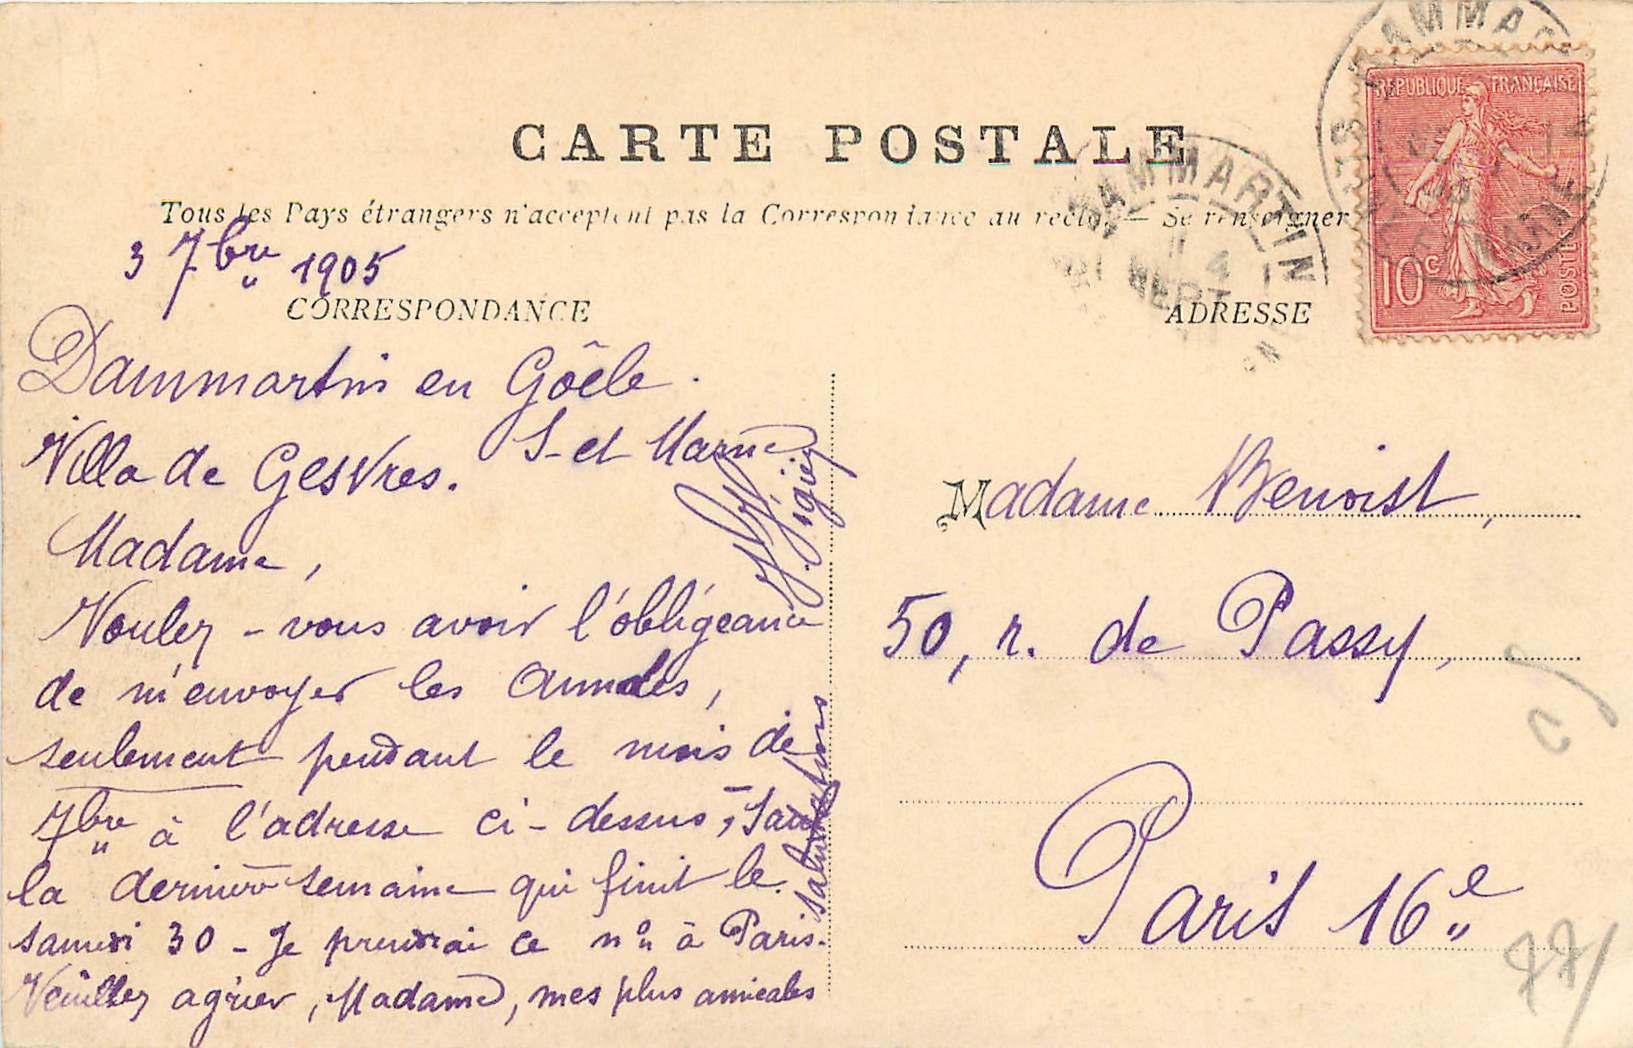 CARTE POSTALE
Tous les Pays étrangers n'acceptent pas la Correspondance au recto. — Se renseigner
3 7bre 1905
CORRESPONDANCE
Dammartin en Goêle.
S-et Marne
Villa de Gesvres.
Madame,
Voulez-vous avoir l'obligeance
de m'envoyer les Annales,
seulement pendant le mois de
7bre à l'adresse ci-dessus, sauf
la dernière semaine qui finit le
samedi 30 - Je prendrai ce no à Paris.
Veuillez agréer, Madame, mes plus amicales
salutations
ADRESSE
Madame Benoist,
50, r. de Passy,
Paris 16e
REPUBLIQUE FRANÇAISE
10c
POSTES
DAMMARTIN
4
SEPT
DAMMAR
MARNE
77